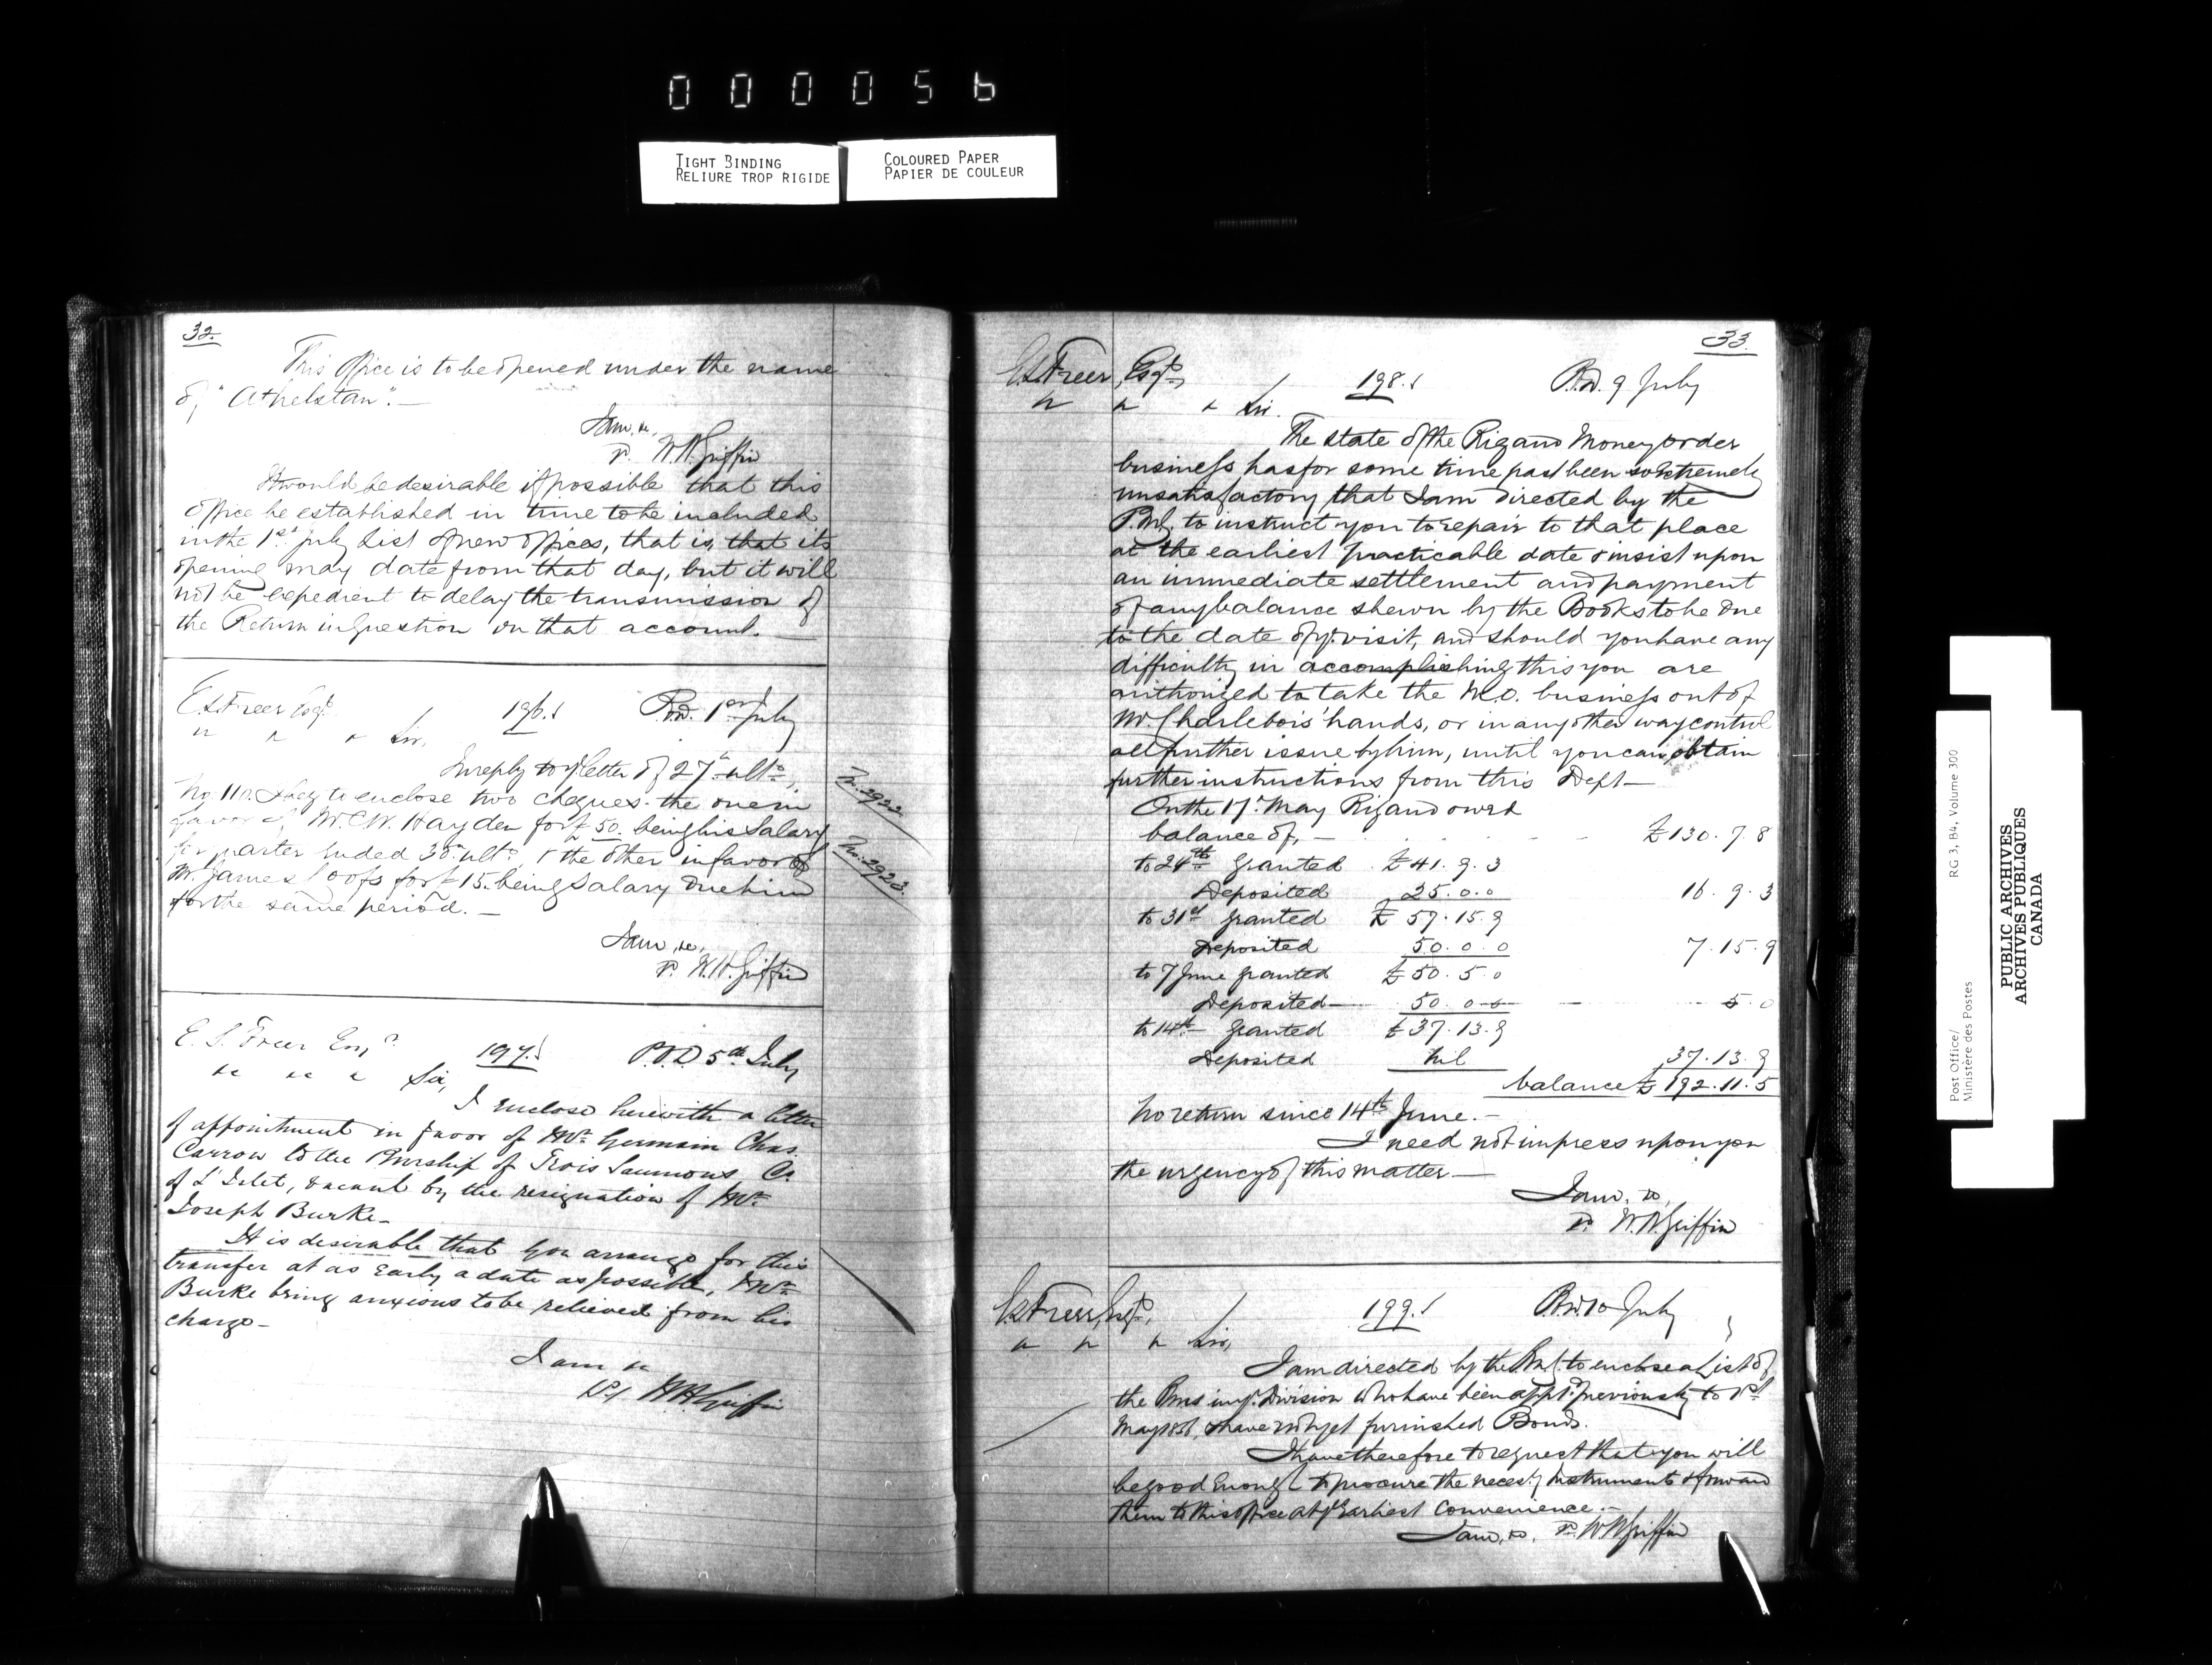 000056
TIGHT BINDING
RELIURE TROP RIGIDE
COLOURED PAPER
PAPIER DE COULEUR
32.
This Office is to be opened under the name
of "Athelstan".—
I am, &c,
p. W.H. Griffin
It would be desirable if possible that this
office be established in time to be included
in the 1st July List of new offices, that is, that its
opening may date from that day, but it will
not be expedient to delay the transmission of
the Return in Question on that account.—
E.S. Freer Esqr.
196.
P.O.D. 1st July
" " " Sir,
In reply to yr. letter of 27th ulto.,
No. 110. I beg to enclose two cheques. the one in
favor of Mr. C.W. Hayden for £50. being his Salary
for quarter ended 30th ulto., & the other in favor of
Mr. James for £15. being Salary due him
for the same period.—
No. 2922.
No. 2923.
I am, &c,
p. W.H. Griffin
E. S. Freer Esqr.
197.
P.O.D. 5th July
" " " Sir,
I enclose herewith a letter
of appointment in favor of Mr. Germain Chas.
Carrow to the Pmrship of Trois Saumons Co.
of L'Islet, vacant by the resignation of Mr.
Joseph Burke—
It is desirable that you arrange for this
transfer at as Early a date as possible, Mr.
Burke being anxious to be relieved from his
charge—
I am &c
p. W.H. Griffin
33.
E.S. Freer, Esqr.,
198.
P.O.D. 9 July
" " " Sir.
The state of the Rigaud Money order
business has for some time past been so Extremely
unsatisfactory that I am directed by the
P.M.G. to instruct you to repair to that place
at the earliest practicable date & insist upon
an immediate settlement and payment
of any balance shewn by the Books to be due
to the date of yr. visit, and should you have any
difficulty in accomplishing this you are
authorized to take the M.O. business out of
Mr. Charlebois' hands, or in any other way control
all further issue by him, until you can obtain
further instructions from this Dept—
On the 17th May Rigaud owed
balance of, — £130. 7. 8
to 24th Granted £41. 9. 3
Deposited 25. 0. 0 16. 9. 3
to 31st granted £57. 15. 9
Deposited 50. 0. 0 7. 15. 9
to 7 June granted £50. 5. 0
Deposited— 50. 0. 0 — 5. 0
to 14th Granted £37. 13. 9
Deposited nil 37. 13. 9
balance £192. 11. 5
No return since 14th June.—
I need not impress upon you
the urgency of this matter—
I am, &c,
p. W.H. Griffin
E.S. Freer, Esqr.,
199.
P.O.D. 10 July
" " " Sir,
I am directed by the P.M.G. to enclose a List of
the Pmrs in yr. Division who have been appd. previously to 1st
May 1856, & have not yet furnished Bonds.
I have therefore to request that you will
be good Enough to procure the necesy. Instruments & forward
them to this office at yr. Earliest Convenience.—
I am, &c, p. W.H. Griffin
Post Office/
Ministère des Postes
RG 3, B4, Volume 300
PUBLIC ARCHIVES
ARCHIVES PUBLIQUES
CANADA